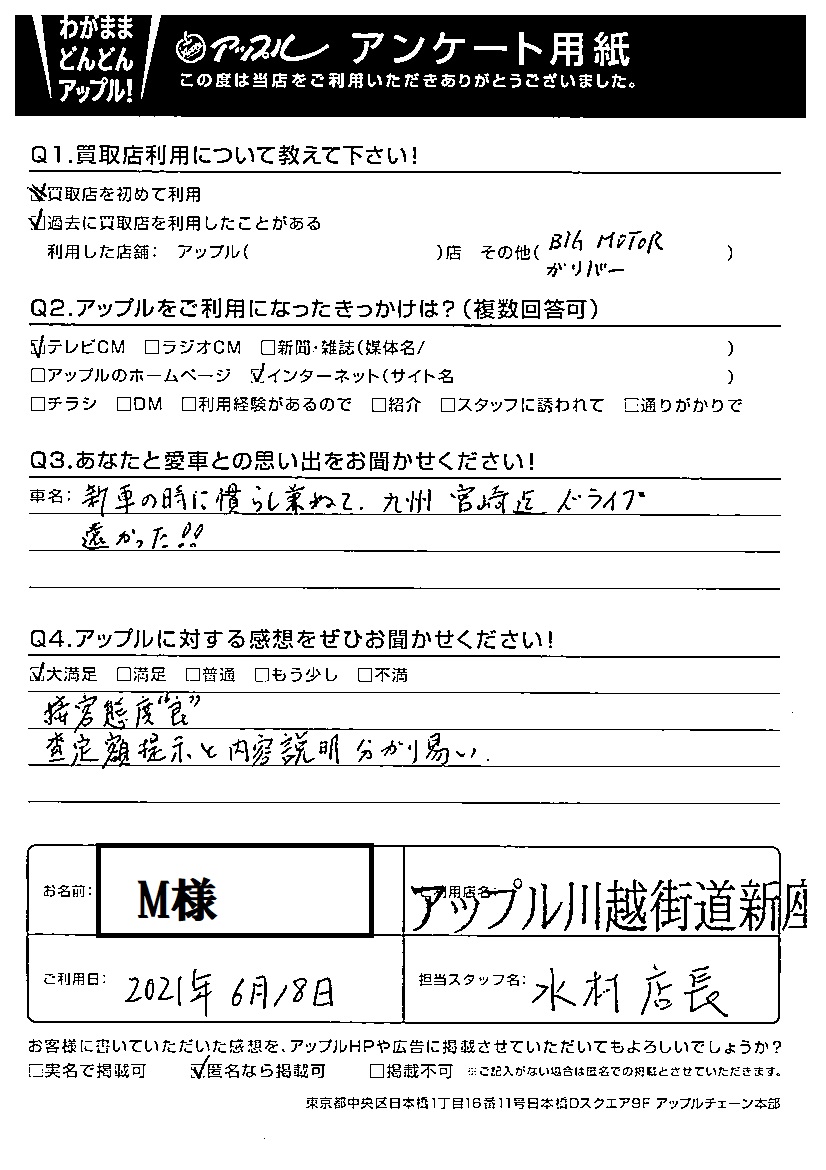 わがまま
どんどん
アップル!
アップル アンケート用紙
この度は当店をご利用いただきありがとうございました。
Q1.買取店利用について教えて下さい!
買取店を初めて利用
☑過去に買取店を利用したことがある
利用した店舗: アップル( )店 その他( BIG MOTOR
ガリバー )
Q2.アップルをご利用になったきっかけは?(複数回答可)
☑テレビCM □ラジオCM □新聞・雑誌(媒体名/ )
□アップルのホームページ ☑インターネット(サイト名 )
□チラシ □DM □利用経験があるので □紹介 □スタッフに誘われて □通りがかりで
Q3.あなたと愛車との思い出をお聞かせください!
車名: 新車の時に慣らし兼ねて、九州 宮崎迄 ドライブ
遠かった!!
Q4.アップルに対する感想をぜひお聞かせください!
☑大満足 □満足 □普通 □もう少し □不満
接客態度“良”
査定額提示と内容説明分かり易い.
お名前: M様
ご利用店名
アップル川越街道新座
ご利用日: 2021年 6月18日
担当スタッフ名: 水村 店長
お客様に書いていただいた感想を、アップルHPや広告に掲載させていただいてもよろしいでしょうか?
□実名で掲載可 ☑匿名なら掲載可 □掲載不可 ※ご記入がない場合は匿名での掲載とさせていただきます。
東京都中央区日本橋1丁目16番11号日本橋Dスクエア9F アップルチェーン本部